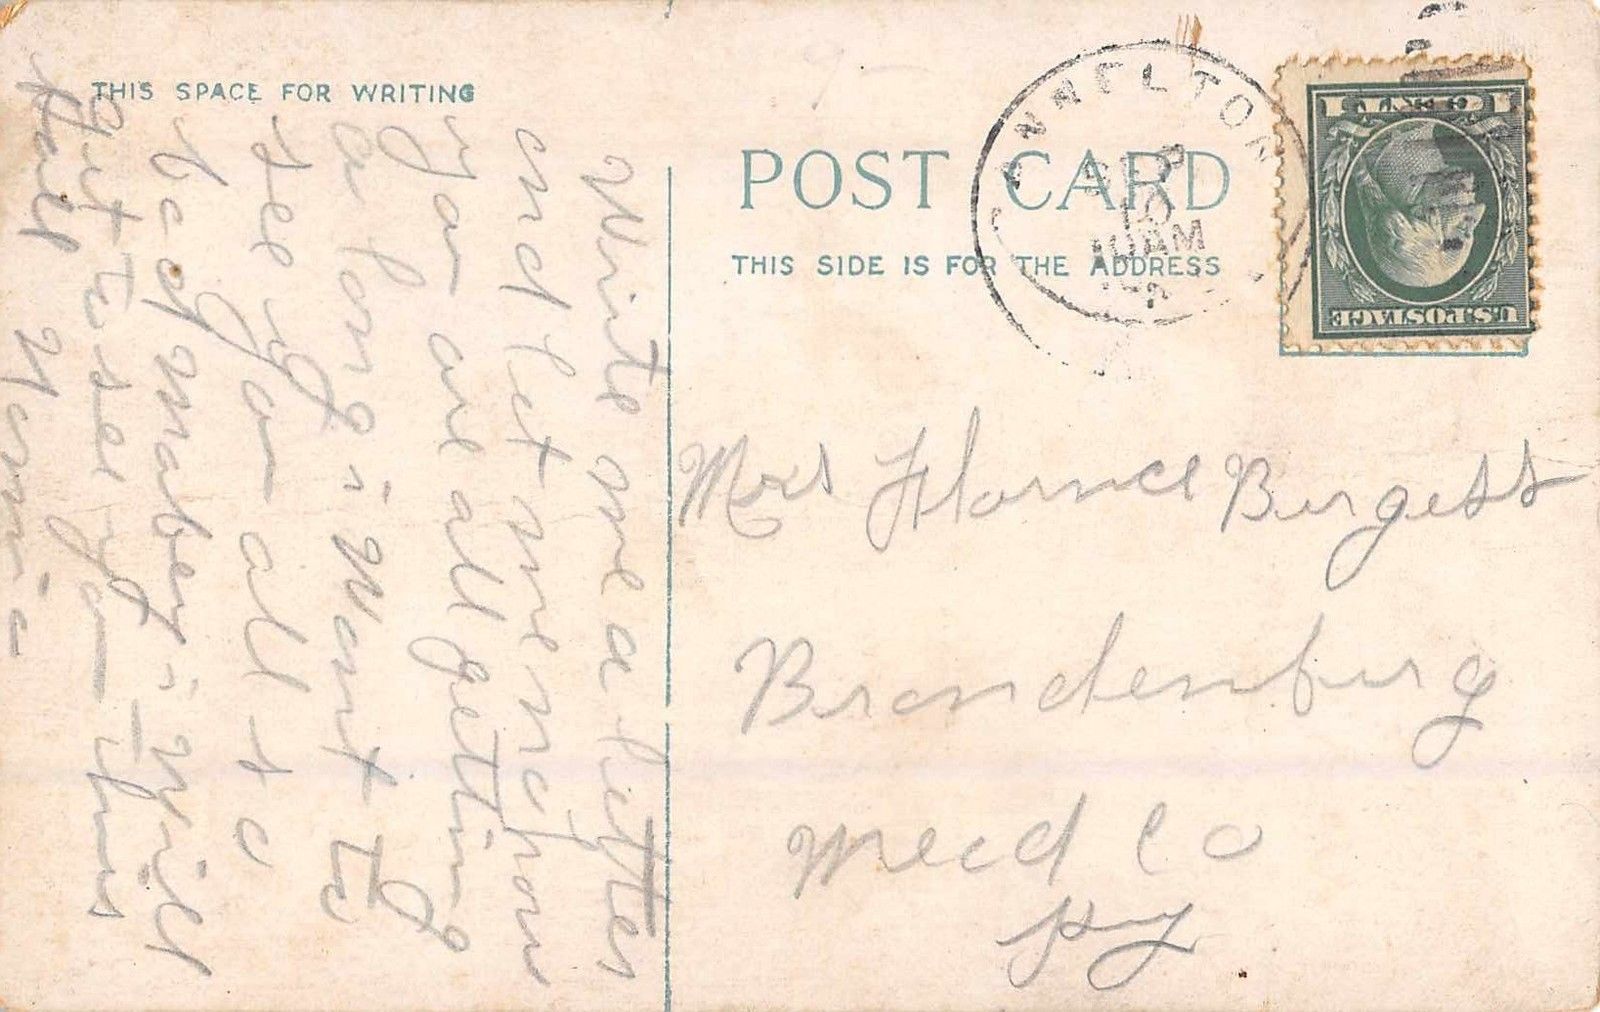 THIS SPACE FOR WRITING
Write me a letter
and let me no how
you are all getting
a long i Want to
see you all to
bad Maby i Will
gut to see you thurs
POST CARD
THIS SIDE IS FOR THE ADDRESS
CANNELTON
SEP
10 AM
U.S. POSTAGE
Mrs Florence Burgess
Brandenburg
Mead Co
Ky